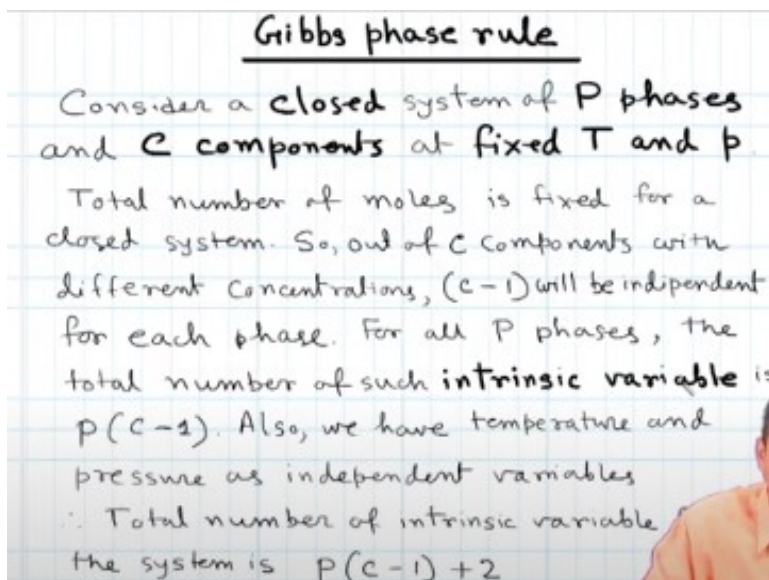 Gibbs phase rule
Consider a closed system of P phases
and C components at fixed T and p
Total number of moles is fixed for a
closed system. So, out of C components with
different concentrations, (C-1) will be indipendent
for each phase. For all P phases, the
total number of such intrinsic variable is
P(C-1). Also, we have temperature and
pressure as independent variables
∴ Total number of intrinsic variable
the system is P(C-1) + 2